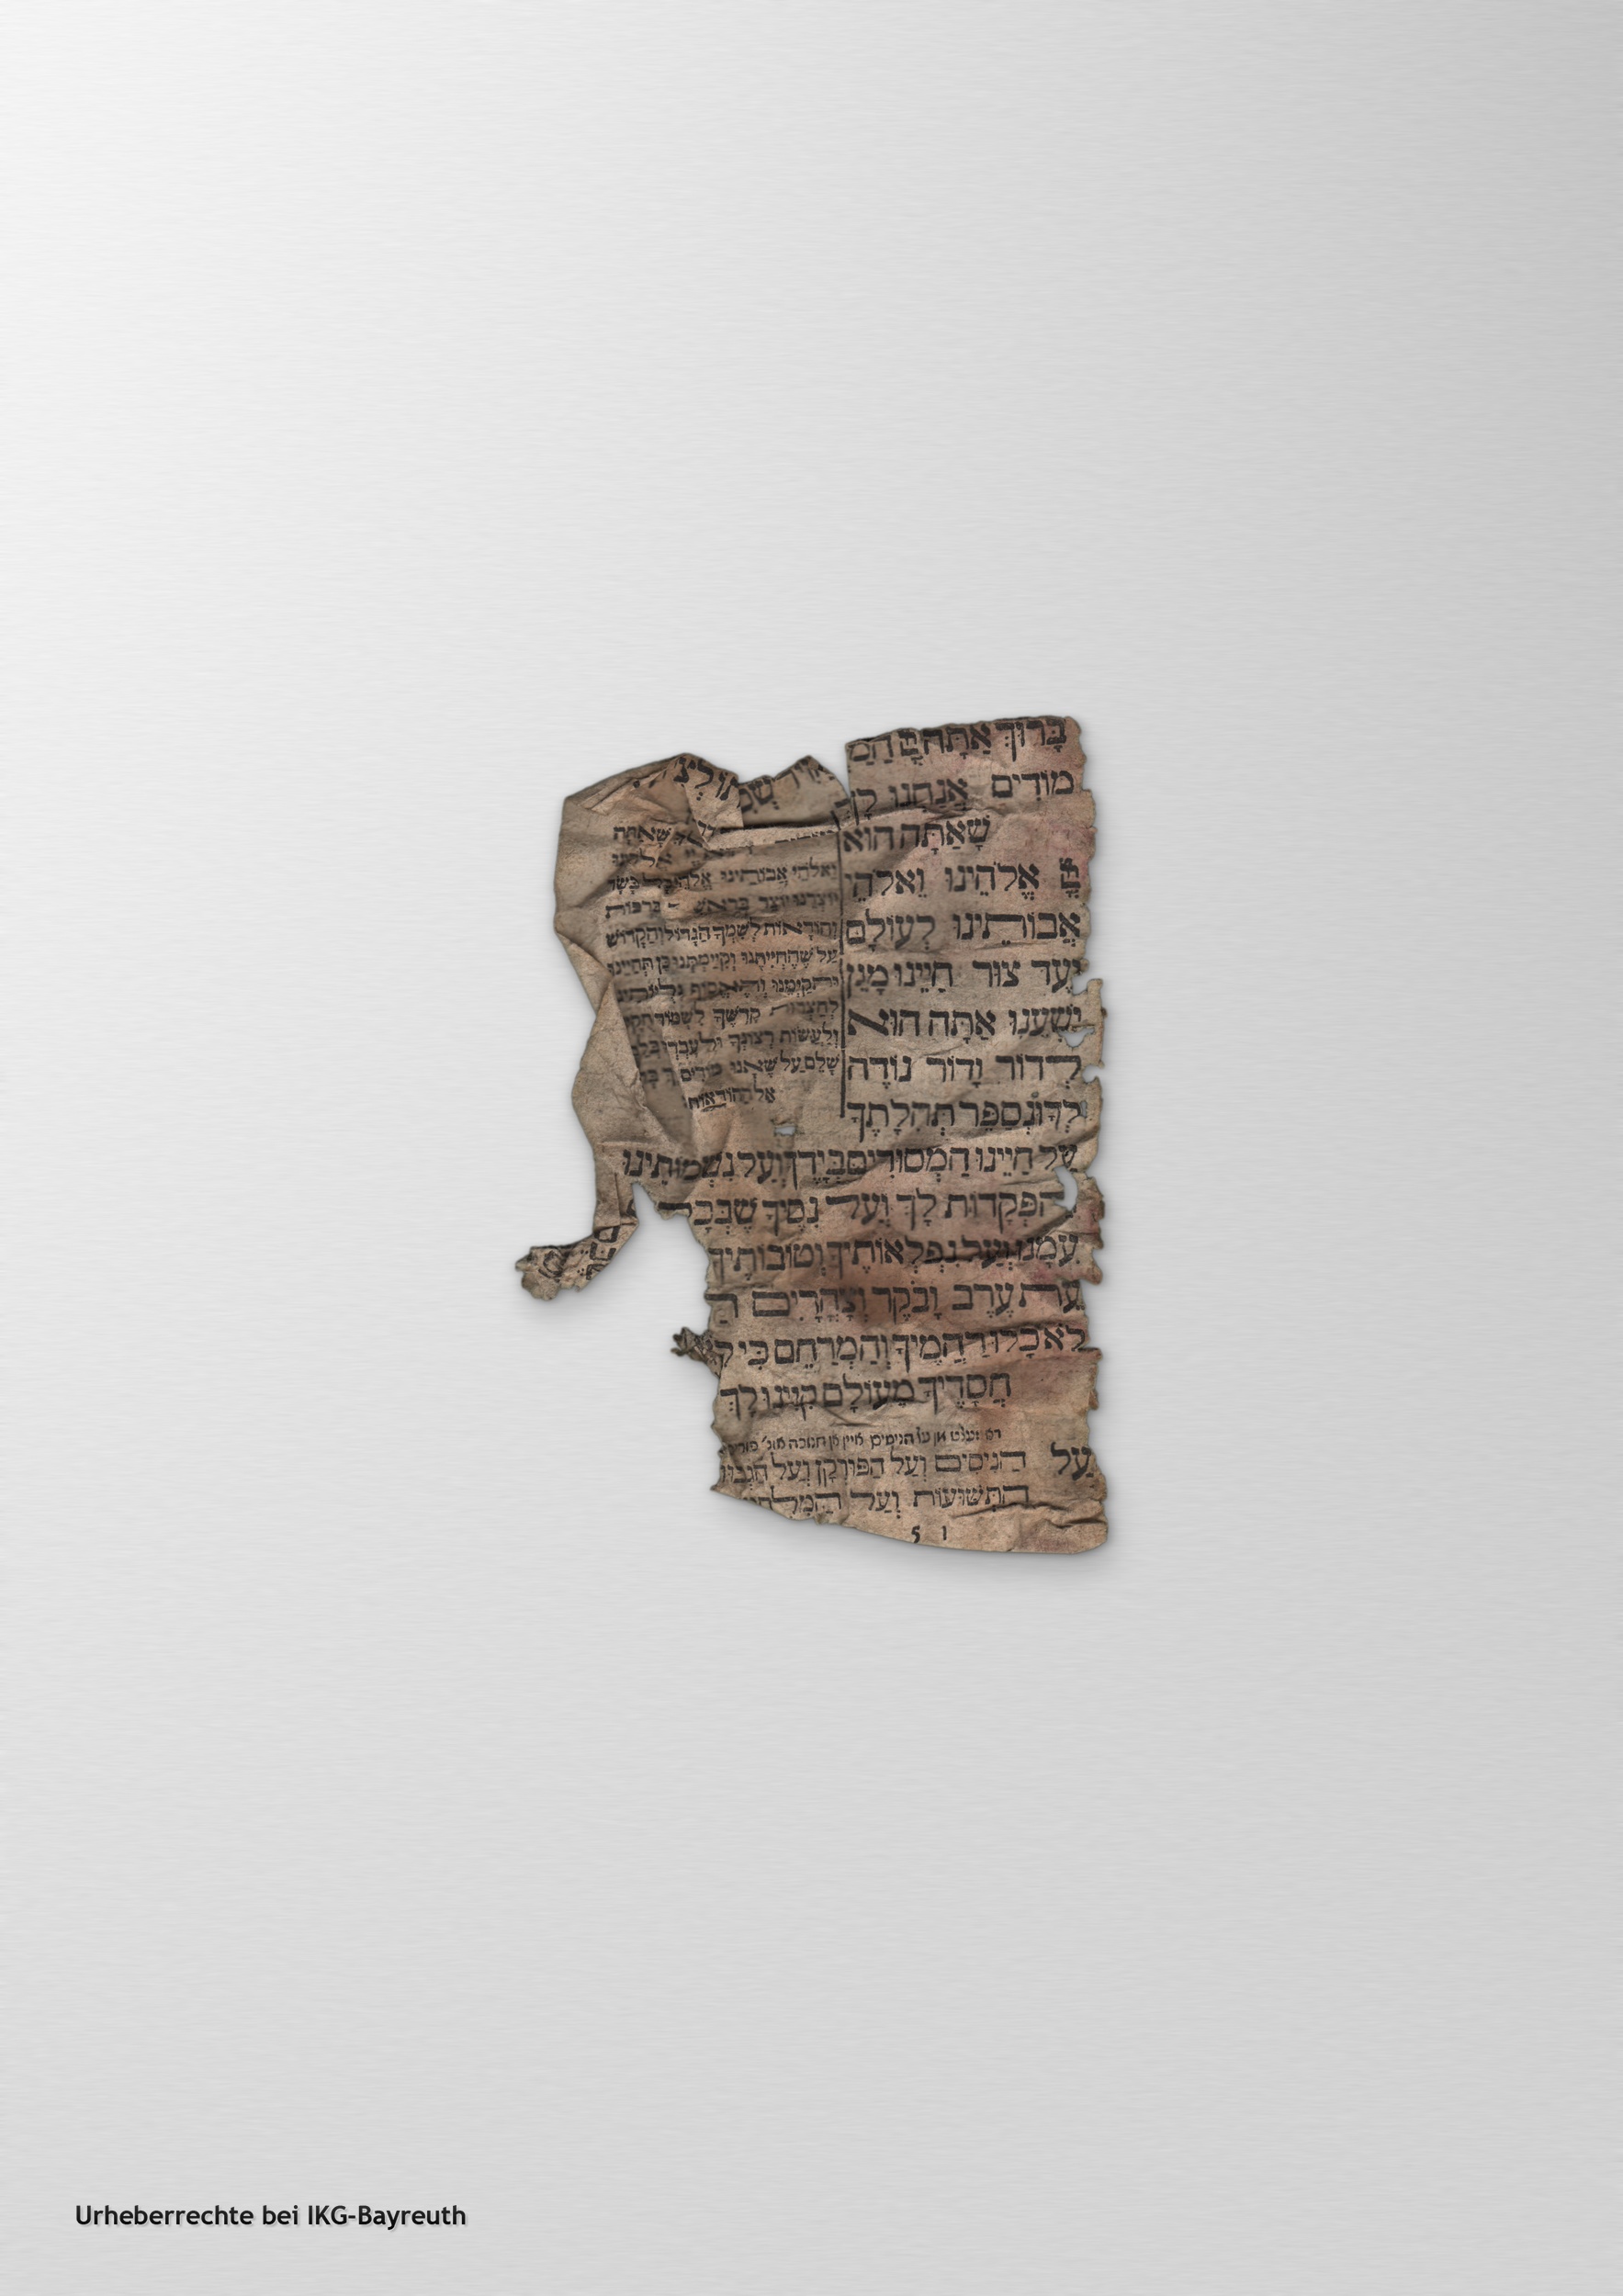 בָּרוּךְ אַתָּה יְיָ הַמַּ
מוֹדִים אֲנַחְנוּ לָךְ
שָׁאַתָּה הוּא
יְיָ אֱלֹהֵינוּ וֵאלֹהֵי
אֲבוֹתֵינוּ לְעוֹלָם
וָעֶד צוּר חַיֵּינוּ מָגֵן
יִשְׁעֵנוּ אַתָּה הוּא
לְדוֹר וָדוֹר נוֹדֶה
לְךָ וּנְסַפֵּר תְּהִלָּתֶךָ
שאתה
וֵאלֹהֵי אֲבוֹתֵינוּ אֱלֹהֵי כָל בָּשָׂר
יוֹצְרֵנוּ יוֹצֵר בְּרֵאשִׁ בְּרָכוֹת
וְהוֹדָאוֹת לְשִׁמְךָ הַגָּדוֹל וְהַקָּדוֹשׁ
עַל שֶׁהֶחֱיִיתָנוּ וְקִיַּימְתָּנוּ כֵּן תְּחַיֵּינוּ
וּתְקַיְּמֵנוּ וְתֶאֱסוֹף גָּלֻיּוֹתֵינוּ
לְחַצְרוֹת קָדְשֶׁךָ לִשְׁמוֹר חֻקֶּ
וְלַעֲשׂוֹת רְצוֹנֶךָ וּלְעָבְדְּךָ בְּלֵ
שָׁלֵם עַל שֶׁאָנוּ מוֹדִים לָךְ בָּר
אֵל הַהוֹדָאוֹת
עַל חַיֵּינוּ הַמְּסוּרִים בְּיָדֶךָ וְעַל נִשְׁמוֹתֵינוּ
הַפְּקֻדוֹת לָךְ וְעַל נִסֶּיךָ שֶׁבְּכָל
עִמָּנוּ וְעַל נִפְלְאוֹתֶיךָ וְטוֹבוֹתֶיךָ
עֵת עֶרֶב וָבֹקֶר וְצָהֳרָיִם הַ
לֹא כָלוּ רַחֲמֶיךָ וְהַמְרַחֵם כִּי לֹ
חֲסָדֶיךָ מֵעוֹלָם קִוִּינוּ לָךְ
דא זאגט מן על הניסים אין חנוכה אונ׳ פורים
עַל הַנִּיסִים וְעַל הַפּוּרְקָן וְעַל הַגְּבוּר
הַתְּשׁוּעוֹת וְעַל הַמִּלְחָ
5 1
Urheberrechte bei IKG-Bayreuth